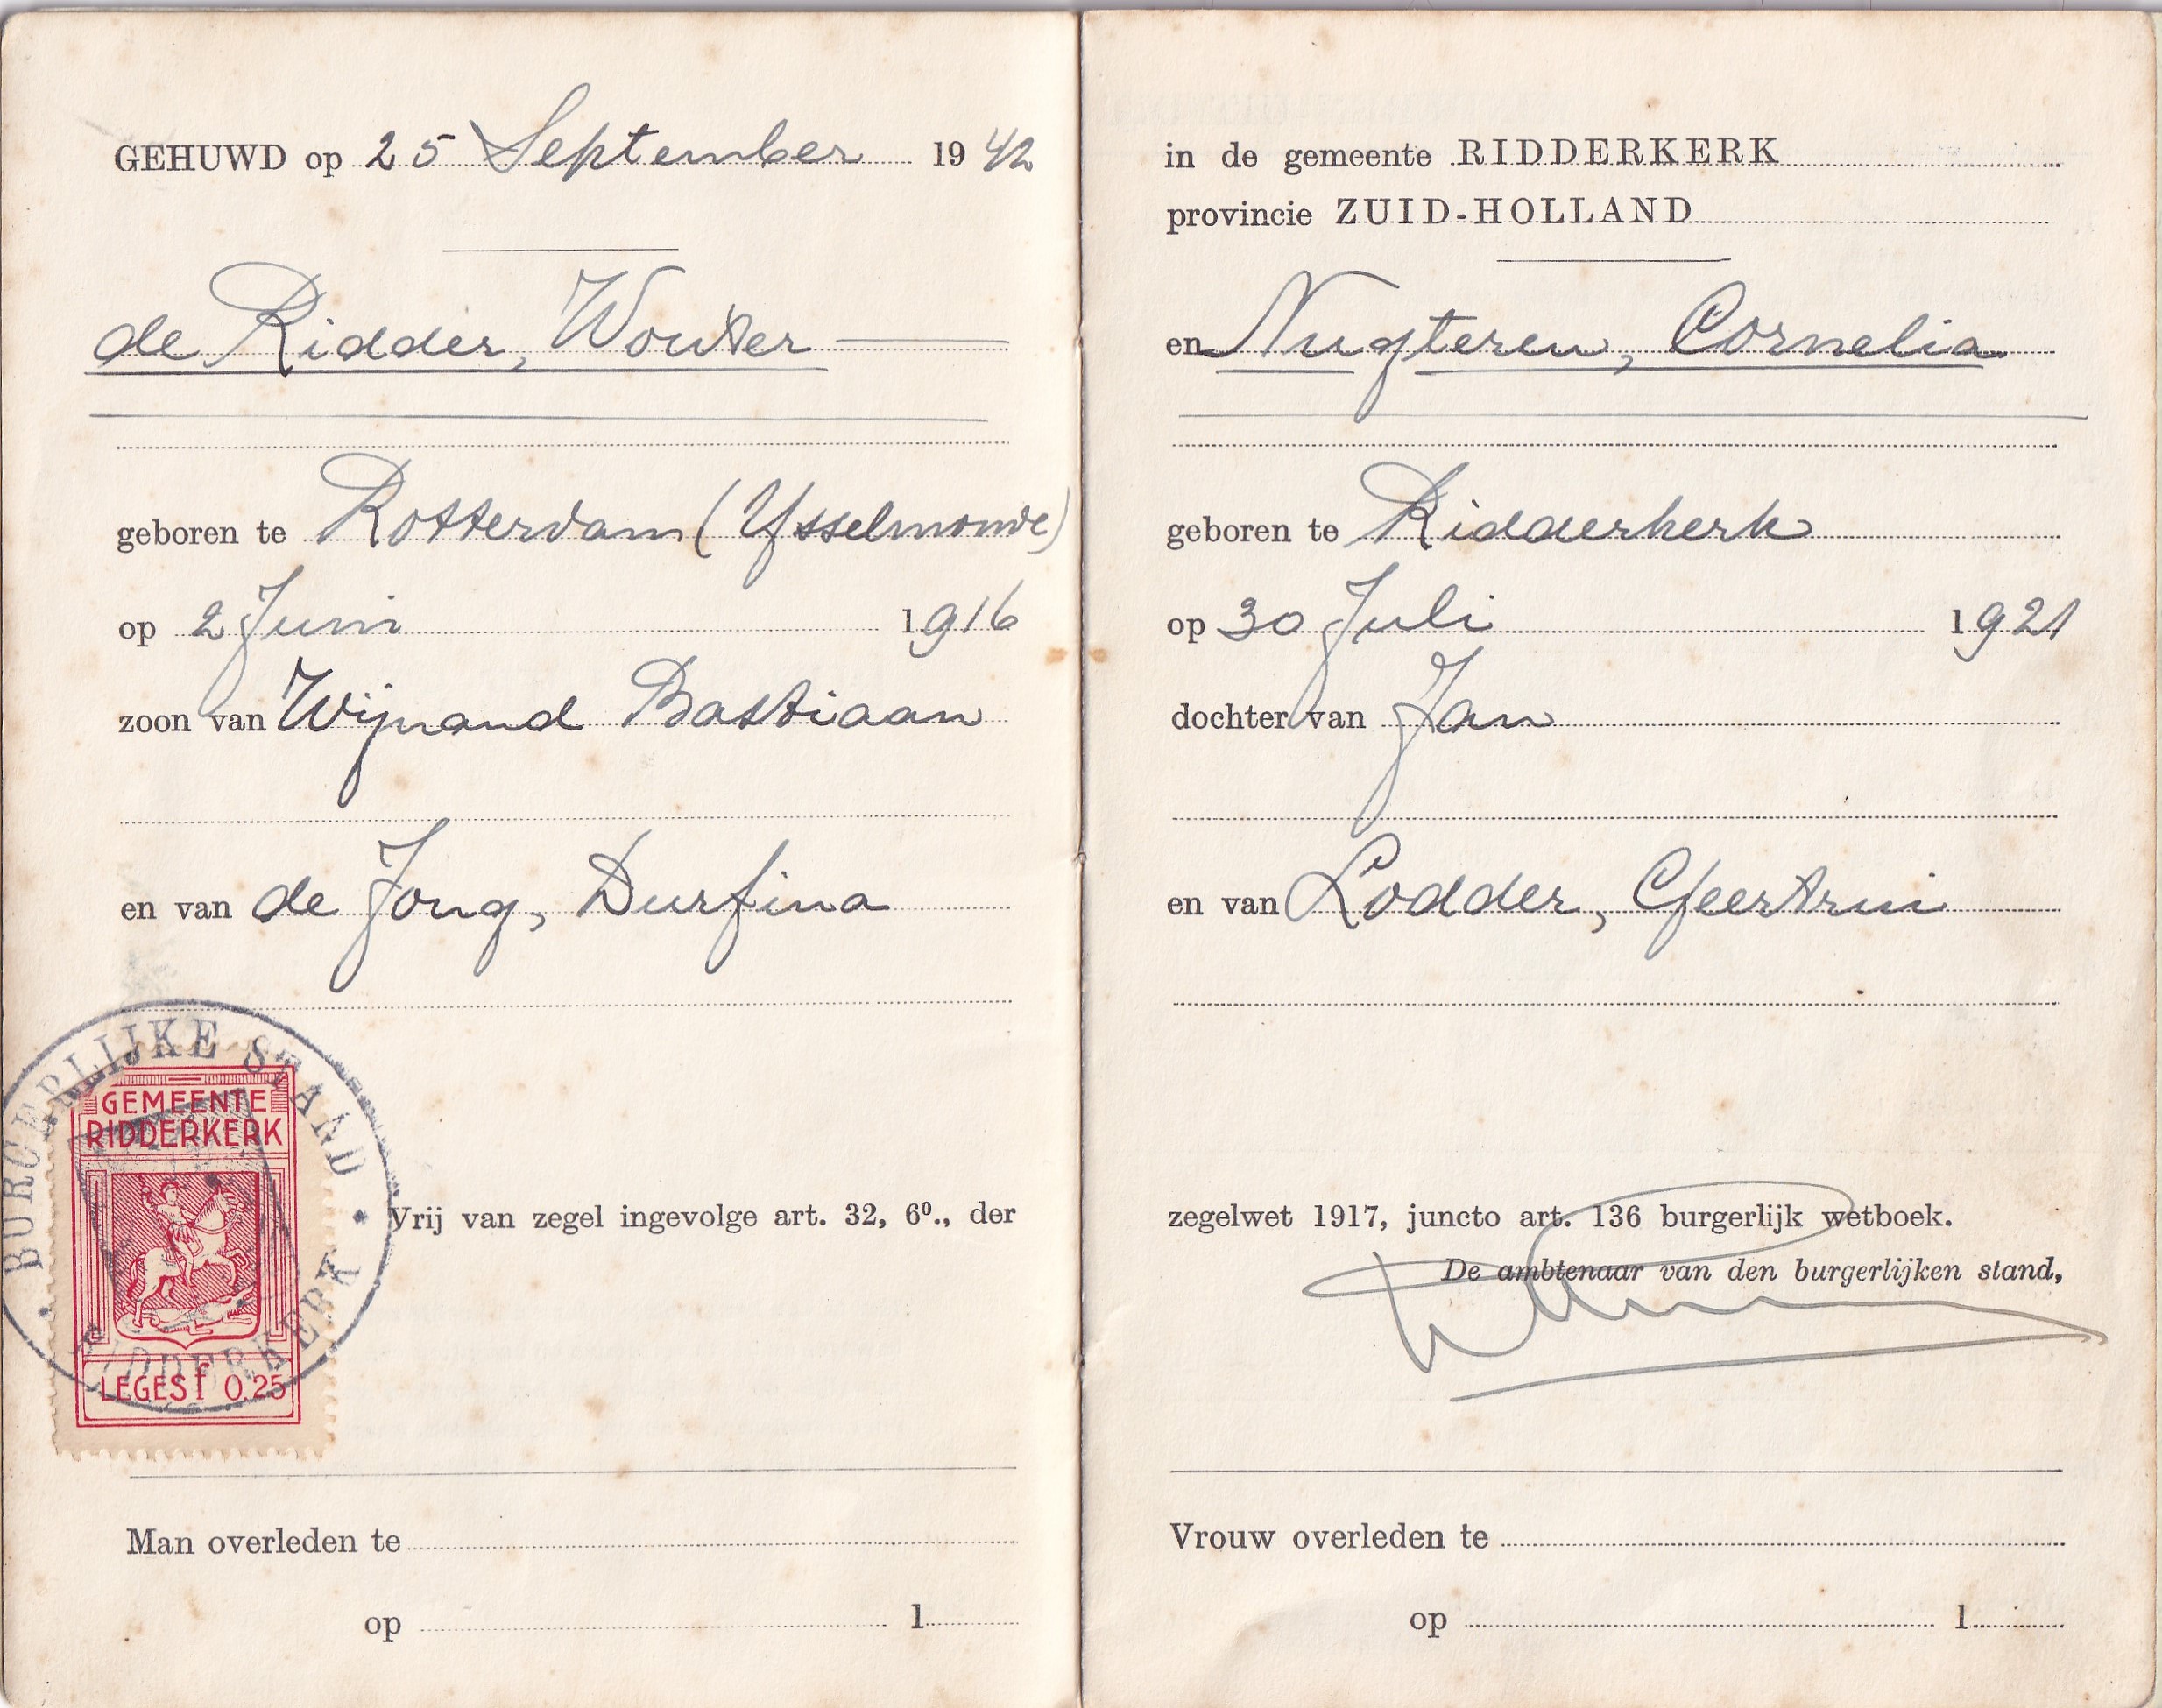 GEHUWD op 25 September 1942
de Ridder, Wouter
geboren te Rotterdam (IJsselmonde)
op 2 Juni 1916
zoon van Wijnand Bastiaan
en van de Jong, Durfina
BURGERLIJKE STAND
RIDDERKERK
GEMEENTE
RIDDERKERK
LEGES f 0.25
Vrij van zegel ingevolge art. 32, 6⁰., der
Man overleden te
op 1
in de gemeente RIDDERKERK
provincie ZUID-HOLLAND
en Nugteren, Cornelia
geboren te Ridderkerk
op 30 Juli 1921
dochter van Jan
en van Lodder, Geertrui
zegelwet 1917, juncto art. 136 burgerlijk wetboek.
De ambtenaar van den burgerlijken stand,
Vrouw overleden te
op 1